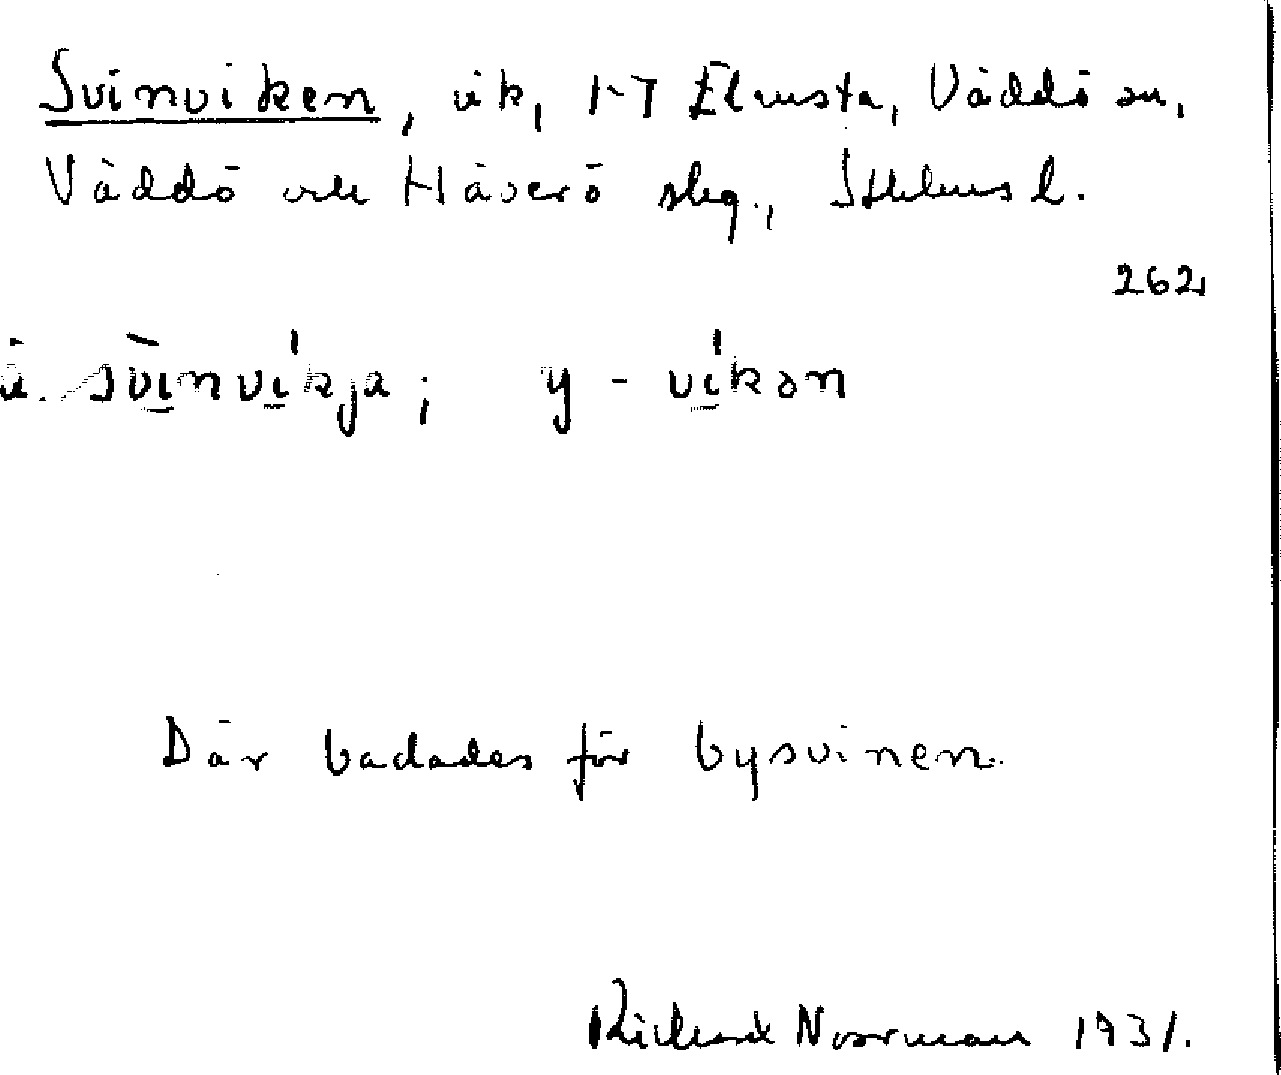 Svinviken, vik, 1-7 Elmsta, Väddö sn,
Väddö och Häverö slg., Sthlms l.
262
ä. svìnvíkja; y - víkən
Där badades för bysvinen.
Richard Norrman 1931.